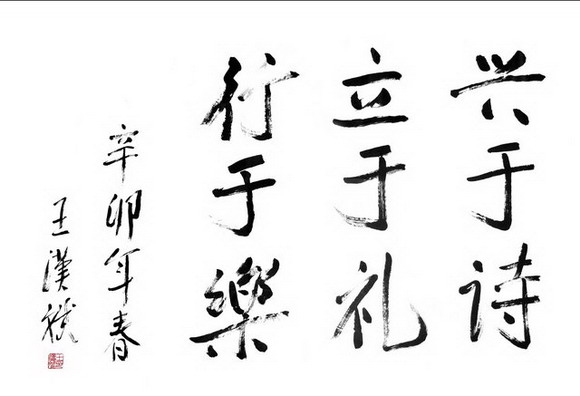 兴于诗
立于礼
行于樂
辛卯年春
王漢